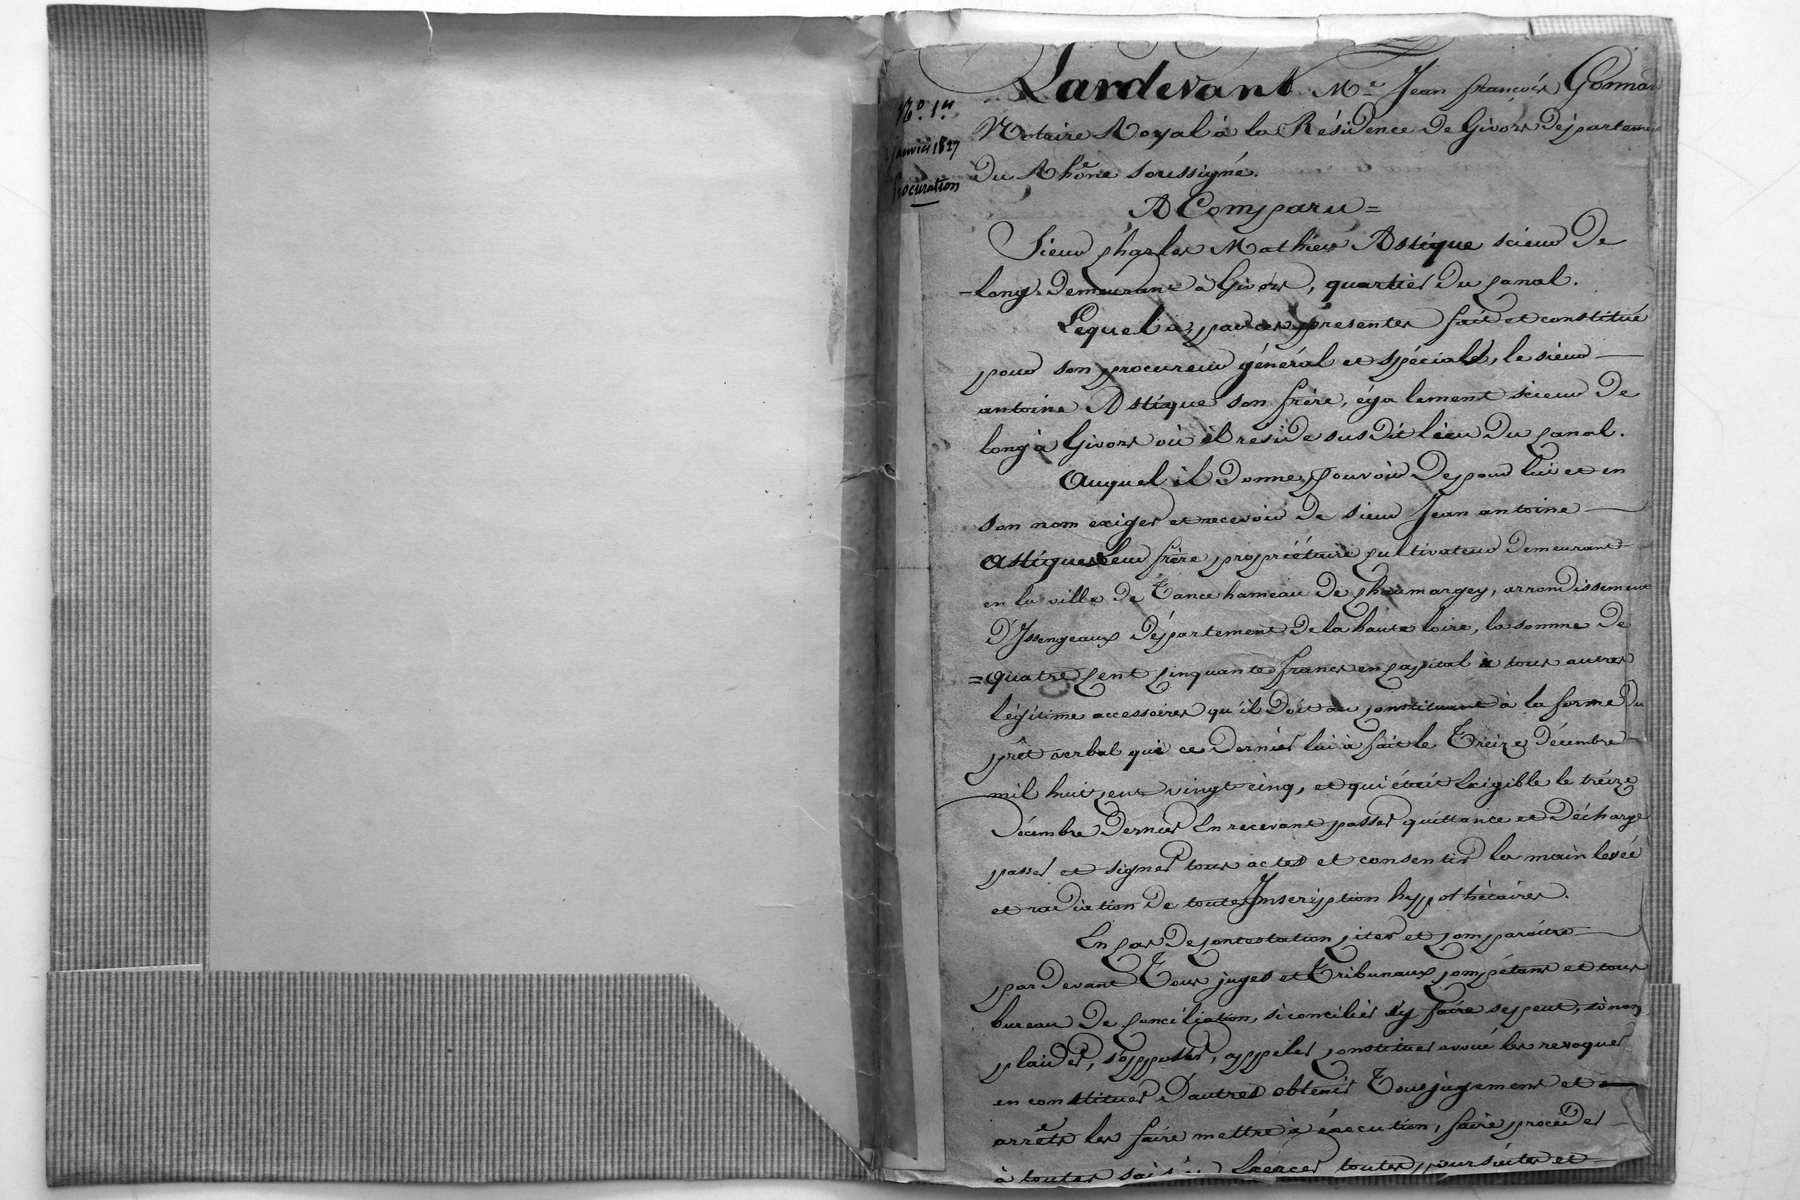 N.o 1.er
janvier 1827
Procuration
Pardevant M.e Jean françois Gonnar
Notaire Royal à la Résidence de Givors départeme
du Rhône soussigné.
A Comparu =
Sieur Charles Mathieu Astique scieur de
-long demeurant à Givors, quartier du Canal.
Lequel a, par ces présentes fait et constitué
pour son procureur général et spécial, le sieur
antoine Astique son frère, également scieur de
long à Givors où il reside susdit lieu du Canal.
Auquel il donne pouvoir de pour lui et en
son nom exiger et recevoir de sieur Jean antoine
Astique leur frère, propriétaire cultivateur demeurant
en la ville de Tance hameau de Chaumargey, arrondissement
d'Issengeaux département de la haute loire, la somme de
= quatre cent cinquante francs en capital & tous autres
légitime accessoires qu'il doit au constituant à la forme du
prêt verbal que ce dernier lui à fait le Treize décembre
mil huit cent vingt cinq, et qui était Exigible le treize
décembre dernier En recevant passer quittance et décharge
passer et signer tous actes et consentir la main levée
et radiation de toute Inscription hypothécaires.
En cas de contestation citer et comparaitre
par devant Tous juges et Tribunaux compétans et tous
bureau de Conciliation, se concilier s'y faire se peut, sinon
plaider, s'opposer, appeler constituer avoué les revoquer
en constituer d'autres obtenir Tous jugement et
arrêts les faire mettre à éxécution, faire procéder
à toutes Exercer toutes poursuites et